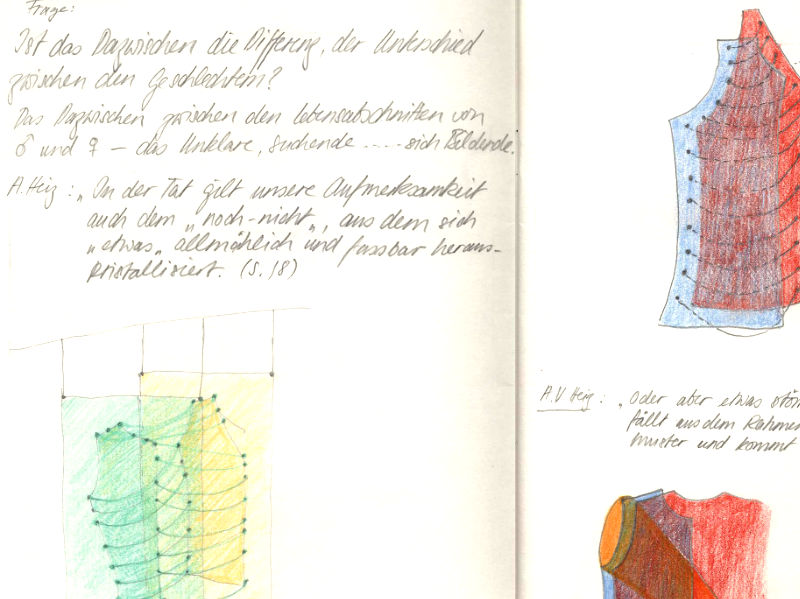 Frage:
Ist das Dazwischen die Differenz, der Unterschied
zwischen den Geschlechtern?
Das Dazwischen zwischen den Lebensabschnitten von
♂ und ♀ – das Unklare, suchende ..... sich Bildende.
A. Heiz : „In der Tat gilt unsere Aufmerksamkeit
auch dem „noch-nicht„, aus dem sich
„etwas„ allmählich und fassbar heraus-
kristallisiert. (S. 18)
A.V Heiz : „Oder aber etwas
fällt aus dem Rahmen
muster und kommt